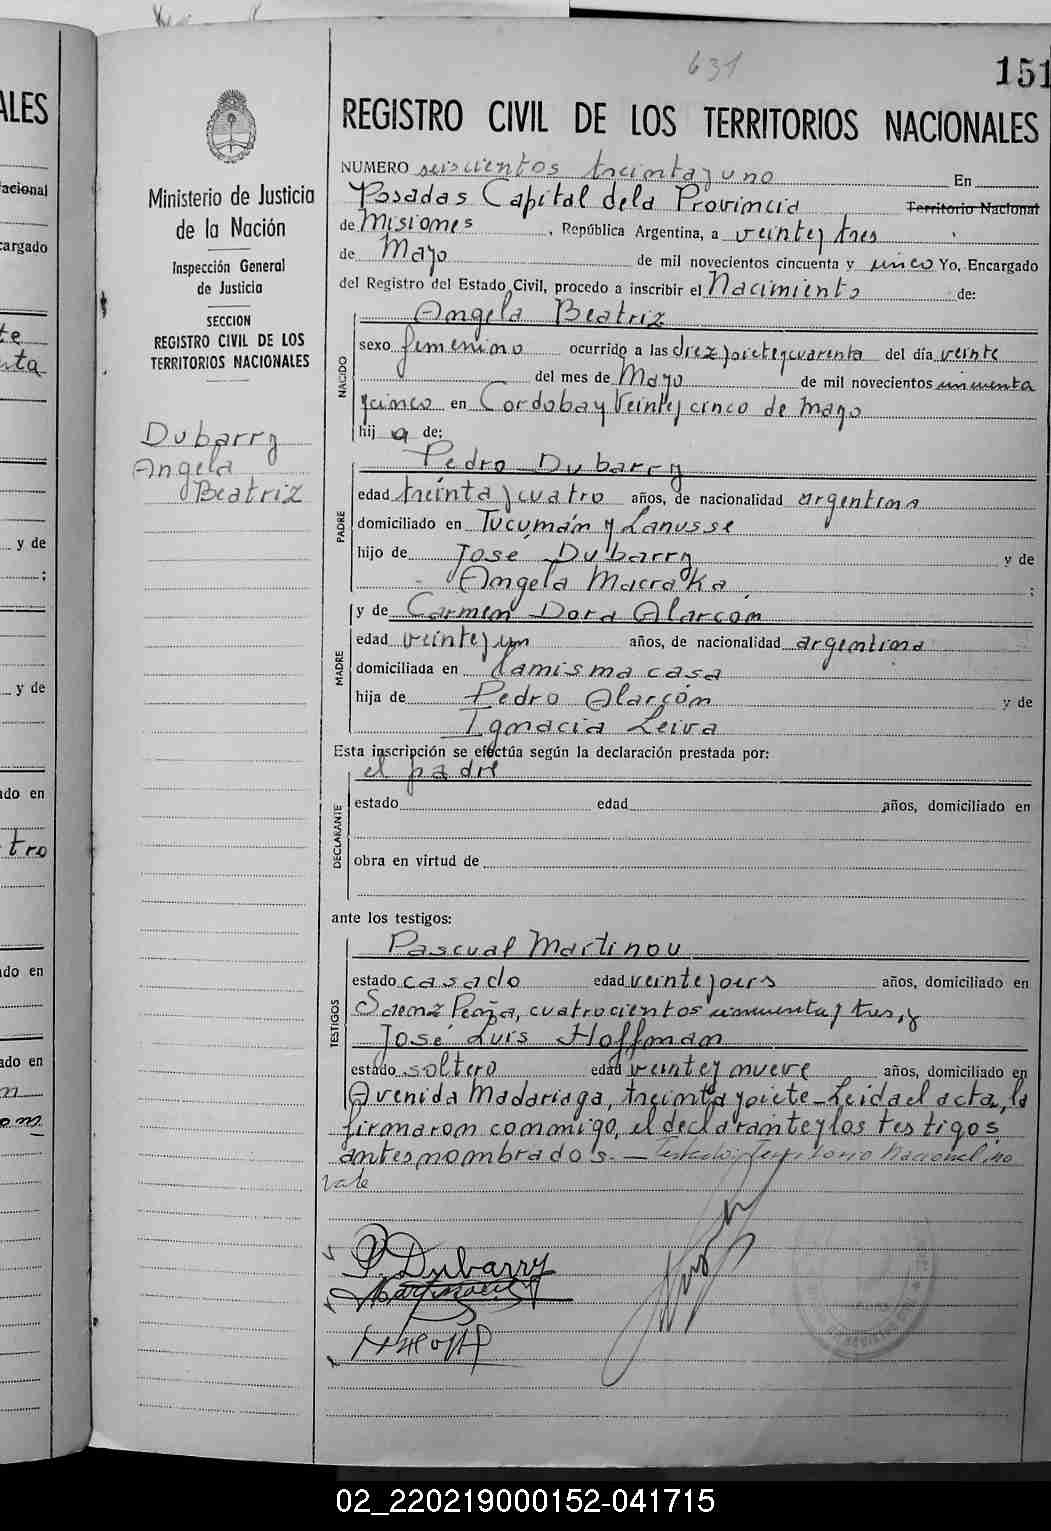 631
151
REGISTRO CIVIL DE LOS TERRITORIOS NACIONALES
NUMERO seiscientos treinta y uno En
Posadas Capital dela Provincia Territorio Nacional
de Misiones , República Argentina, a veinte y tres
de Mayo de mil novecientos cincuenta y cinco Yo, Encargado
del Registro del Estado Civil, procedo a inscribir el Nacimiento de:
NACIDO
Angela Beatriz
sexo femenino ocurrido a las diez y siete y cuarenta del día veinte
del mes de Mayo de mil novecientos cincuenta
y cinco en Cordoba y Veinte y cinco de mayo
hij a de:
PADRE
Pedro Dubarry
edad treinta y cuatro años, de nacionalidad argentina
domiciliado en Tucumán y Lanusse
hijo de José Dubarry y de
Angela Macraka ;
MADRE
y de Carmen Dora Alarcón
edad veinte y un años, de nacionalidad argentina
domiciliada en la misma casa
hija de Pedro Alarcón y de
Ignacia Leiva
Esta inscripción se efectúa según la declaración prestada por:
el padre
DECLARANTE
estado edad años, domiciliado en
obra en virtud de
ante los testigos:
TESTIGOS
Pascual Martinou
estado casado edad veinte y seis años, domiciliado en
Saenz Peña, cuatrocientos cincuenta y tres, y
José Luis Hoffman
estado soltero edad veinte y nueve años, domiciliado en
Avenida Madariaga, treinta y siete - Leida el acta, la
firmaron conmigo, el declarante y los testigos
antes nombrados. — Testado: Territorio Nacional, no
vale
P. Dubarry
Ministerio de Justicia
de la Nación
Inspección General
de Justicia
SECCION
REGISTRO CIVIL DE LOS
TERRITORIOS NACIONALES
Dubarry
Angela
Beatriz
ALES
y de
;
y de
do en
tro
do en
do en
02_220219000152-041715